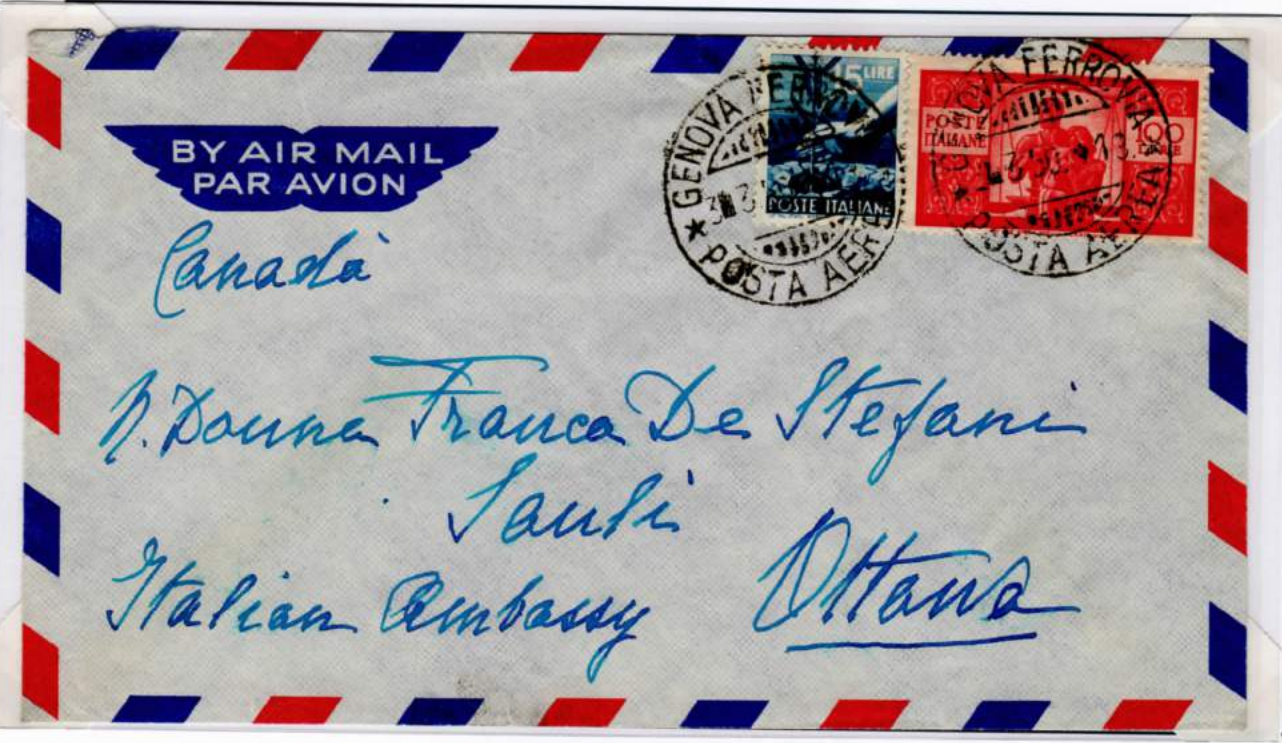 BY AIR MAIL
PAR AVION
GENOVA FERROVIA
POSTA AEREA
LIRE
POSTE ITALIANE
GENOVA FERROVIA
POSTA AEREA
POSTE
ITALIANE
100
LIRE
Canadà
N. Donna Franca De Stefani
Sauli
Italian Embassy Ottawa